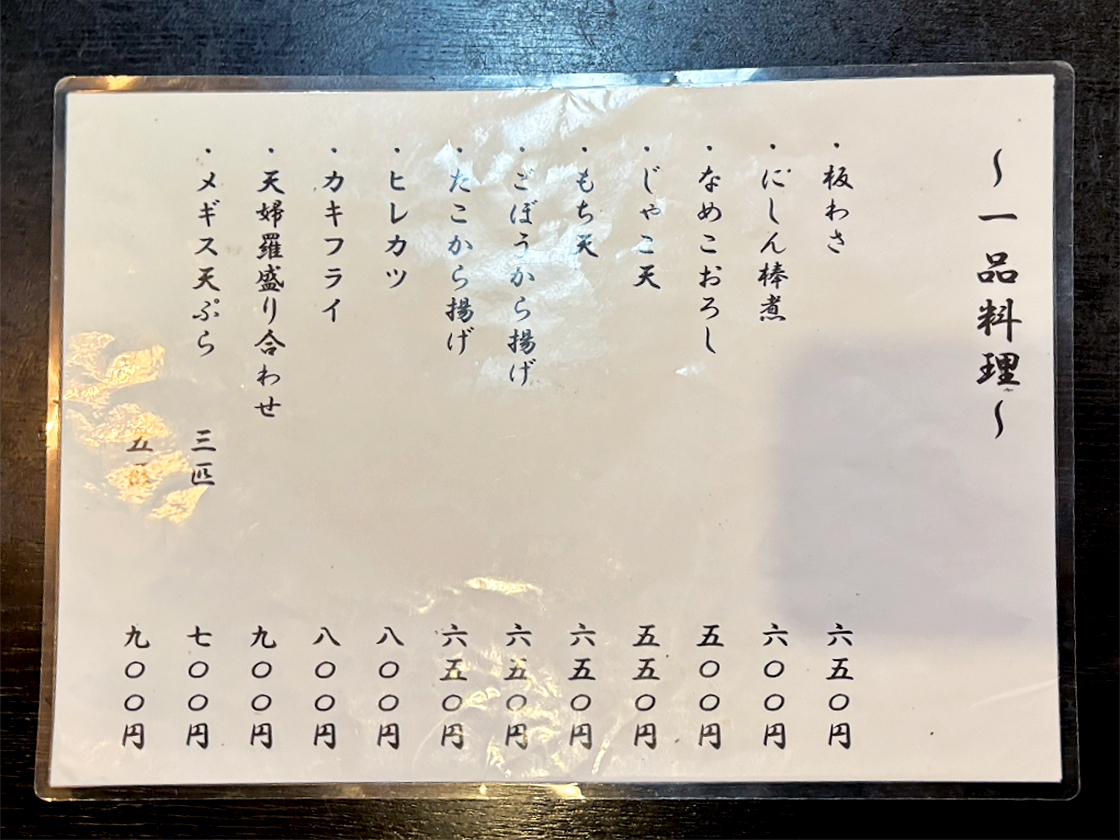 ～一品料理～
・板わさ 六五〇円
・にしん棒煮 六〇〇円
・なめこおろし 五〇〇円
・じゃこ天 五五〇円
・もち天 六五〇円
・ごぼうから揚げ 六五〇円
・たこから揚げ 六五〇円
・ヒレカツ 八〇〇円
・カキフライ 八〇〇円
・天婦羅盛り合わせ 九〇〇円
・メギス天ぷら 三匹 七〇〇円
五匹 九〇〇円